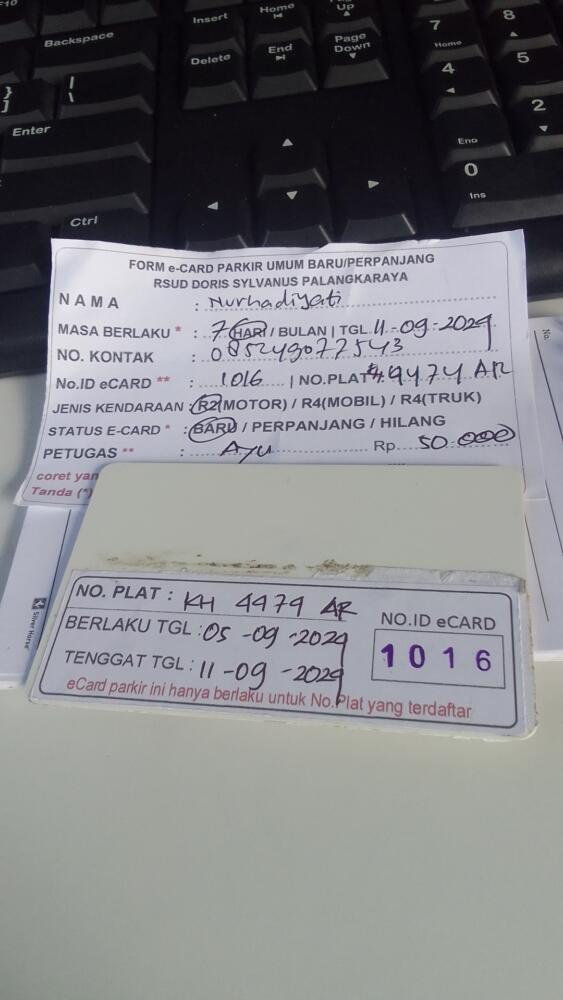 F10
Insert
Home
Up
Backspace
Delete
End
Page
Down
7
Home
8
4
5
}
]
|
\
Enter
2
Ctrl
0
Ins
FORM e-CARD PARKIR UMUM BARU/PERPANJANG
RSUD DORIS SYLVANUS PALANGKARAYA
NAMA : Nurhadiyati
MASA BERLAKU * : 7 HARI / BULAN | TGL 11-09-2024
NO. KONTAK : 085249077543
No.ID eCARD ** : 1016 | NO.PLAT 4474 AR
JENIS KENDARAAN : R2(MOTOR) / R4(MOBIL) / R4(TRUK)
STATUS E-CARD * : BARU / PERPANJANG / HILANG
PETUGAS ** : AYU Rp. 50.000
coret yan
Tanda (*)
No.
Silver Horse
NO. PLAT : KH 4474 AR
BERLAKU TGL : 05-09-2024
TENGGAT TGL : 11-09-2024
NO.ID eCARD
1016
eCard parkir ini hanya berlaku untuk No.Plat yang terdaftar